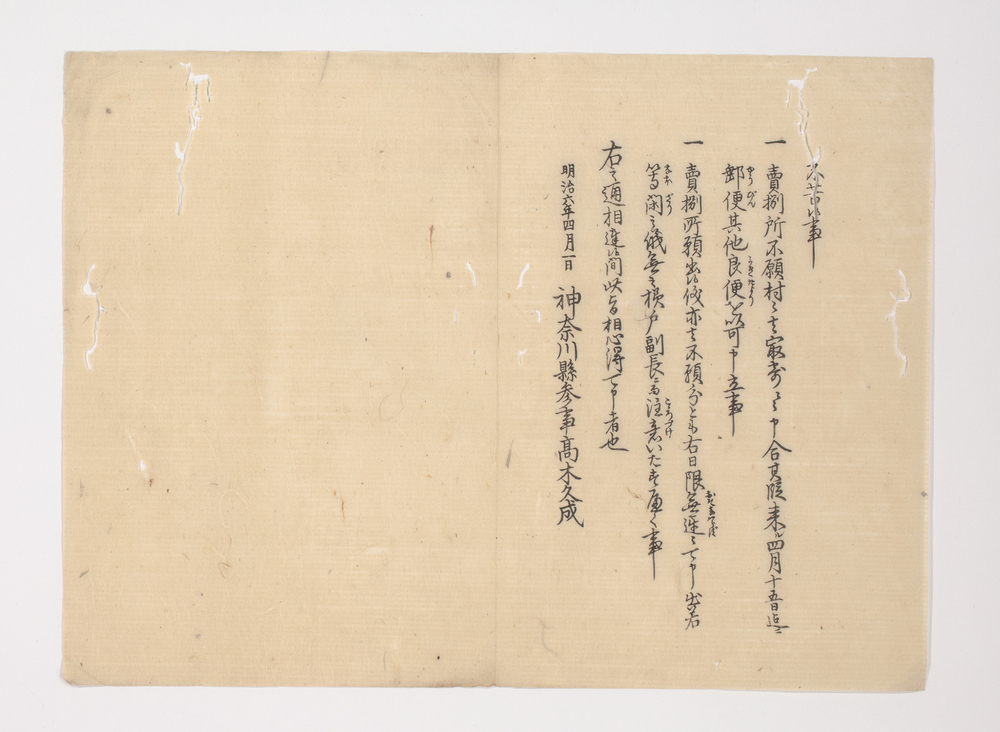 不苦候事
一 賣捌所不願村々者最寄ニ而申合其段来ル四月十五日迄ニ
郵便其他良便を以可申立事
一 賣捌所願出候儀亦者不願分とも右日限無遅々可申出右
等閑之儀無之様戸副長ニ而注意いたすへく事
右之通相達候間此旨相心得可申者也
明治六年四月一日 神奈川縣参事高木久成